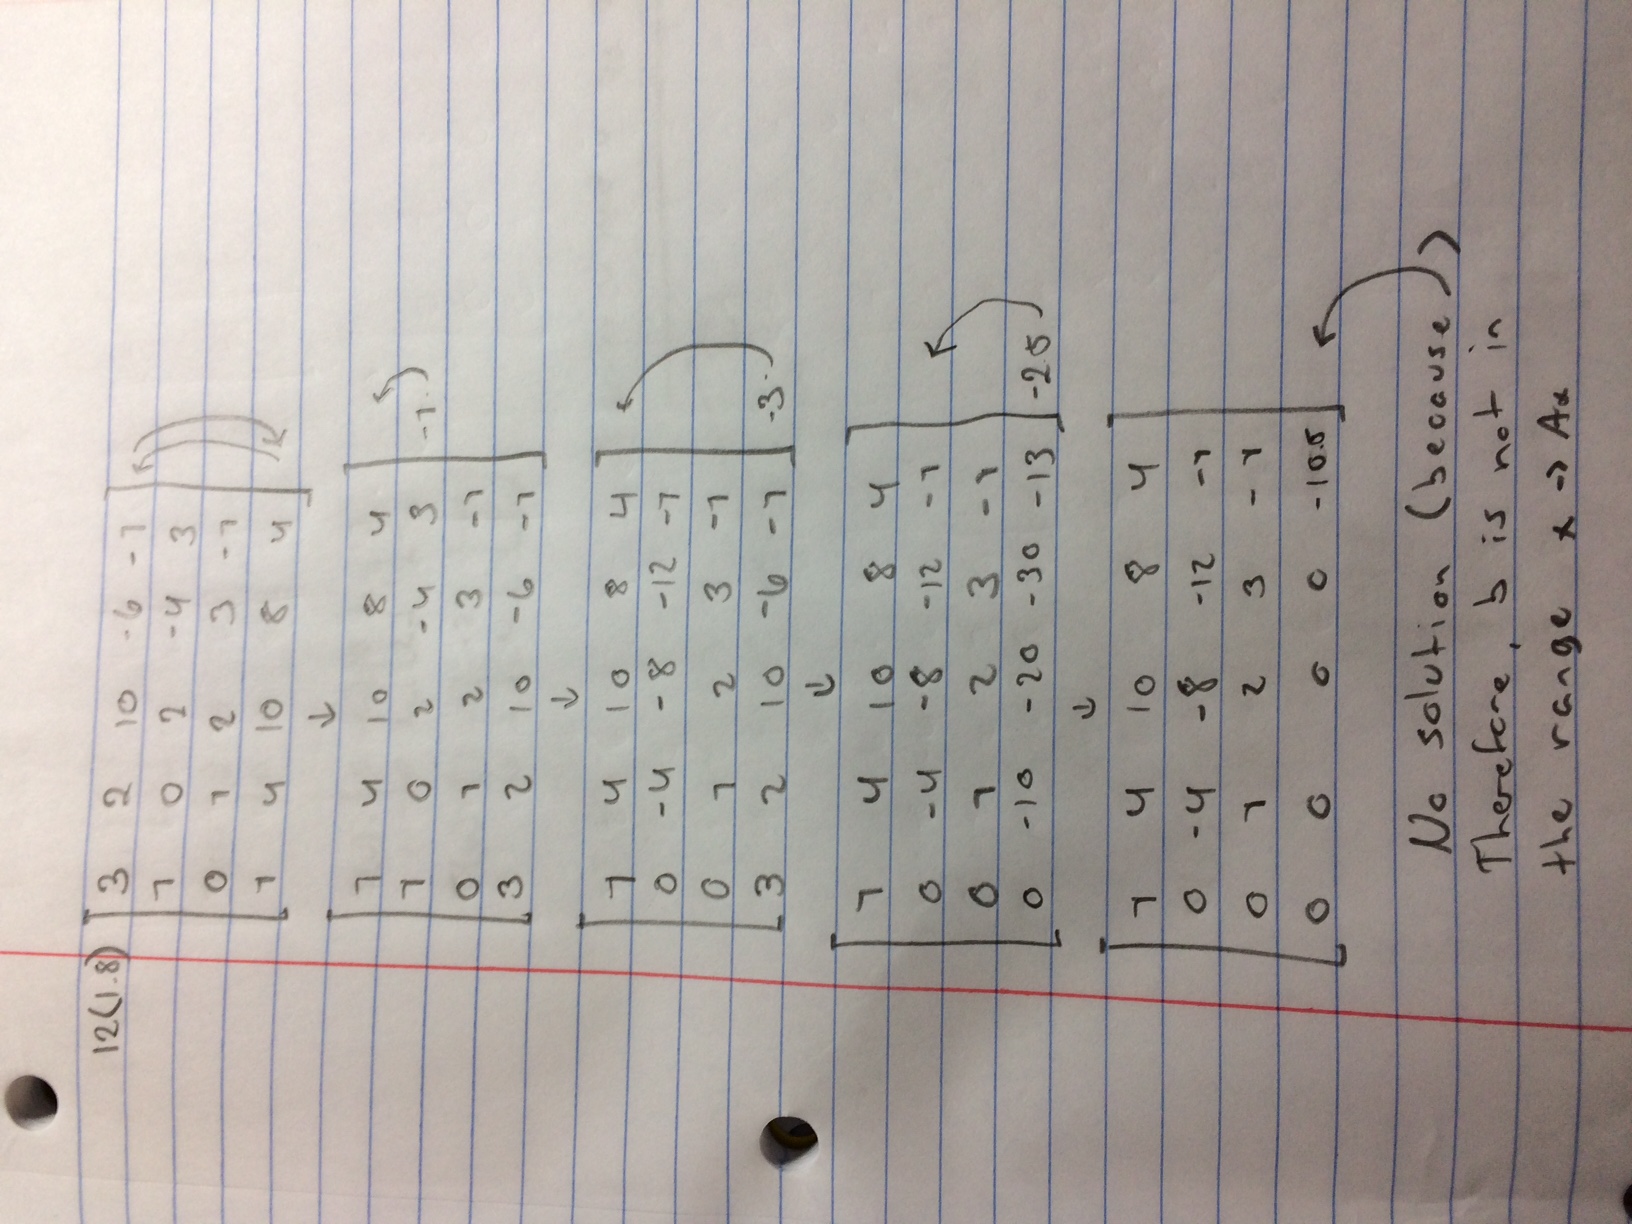 12(1.8) 3 2 10 -6 -1
1 0 2 -4 3
0 1 2 3 -1
1 4 10 8 4
↓
1 4 10 8 4
1 0 2 -4 3 -1·
0 1 2 3 -1
3 2 10 -6 -1
↓
1 4 10 8 4
0 -4 -8 -12 -1
0 1 2 3 -1
3 2 10 -6 -1 -3·
↓
1 4 10 8 4
0 -4 -8 -12 -1
0 1 2 3 -1
0 -10 -20 -30 -13 -2.5
↓
1 4 10 8 4
0 -4 -8 -12 -1
0 1 2 3 -1
0 0 0 0 -10.5
No solution (because )
Therefore, b is not in
the range x → Ax